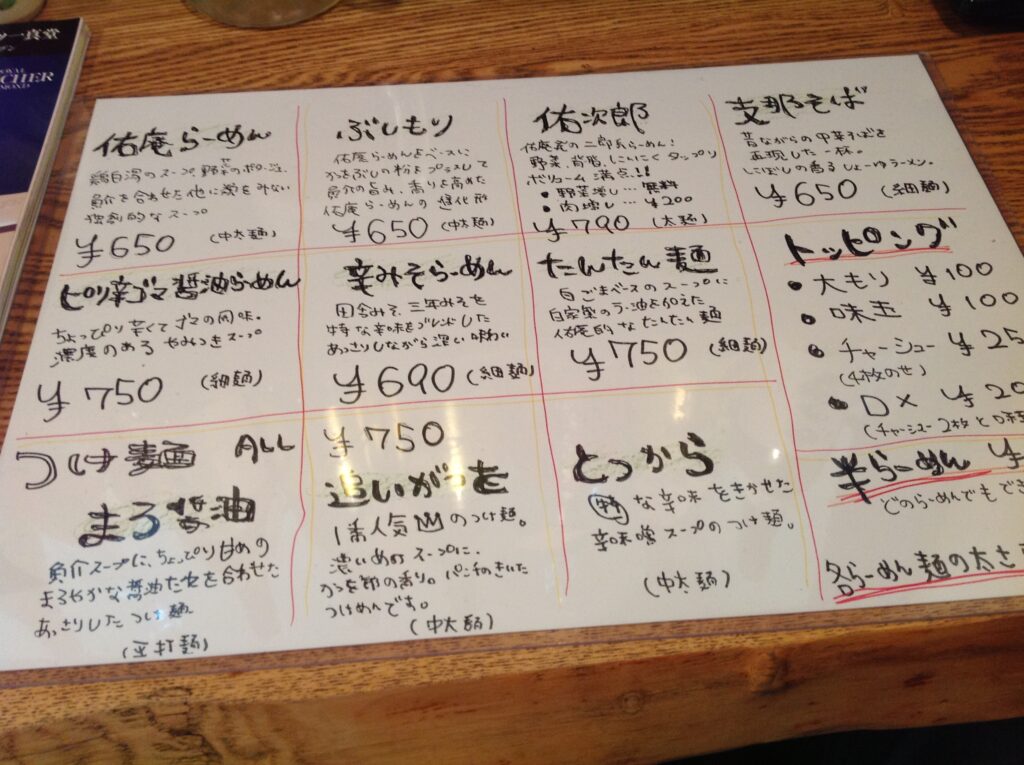 ター真堂
佑庵らーめん
鶏白湯のスープ、野菜のポタージュ、
魚介を合わせた他に類をみない
独創的なスープ
¥650 (中太麺)
ぶしもり
佑庵らーめんをベースに
かつぶしの粉をプラスして
魚介の旨み、香りを高めた
佑庵らーめんの進化形
¥650 (中太麺)
佑次郎
佑庵発の二郎系らーめん!
野菜、背脂、にんにくタップリ
ボリューム満点!!
• 野菜増し… 無料
• 肉増し… ¥200
¥790 (太麺)
支那そば
昔ながらの中華そばを
再現した一杯。
にぼしの香るしょーゆラーメン。
¥650 (細麺)
ピリ辛ゴマ醤油らーめん
ちょっぴり辛くてゴマの風味。
濃度のあるやみつきスープ
¥750 (細麺)
辛みそらーめん
田舎みそ、三年みそを
特な辛味をブレンドした
あっさりしながら深い味わい
¥690 (細麺)
たんたん麺
白ごまベースのスープに
自家製のラー油を加えた
佑庵的なたんたん麺
¥750 (細麺)
トッピング
• 大もり ¥100
• 味玉 ¥100
• チャーシュー ¥25
(4枚のせ)
• DX ¥20
(チャーシュー2枚と味玉
つけ麺 ALL ¥750
まろ醤油
魚介スープに、ちょっぴり甘めの
まろやかな醤油だれを合わせた
あっさりしたつけ麺
(平打麺)
追いがつを
1番人気のつけ麺。
濃いめのスープに、
かつを節の香り。パンチのきいた
つけめんです。
(中太麺)
とっから
特な辛味をきかせた
辛味噌スープのつけ麺。
(中太麺)
半らーめん ¥
どのらーめんでもでき
各らーめん麺の太さ